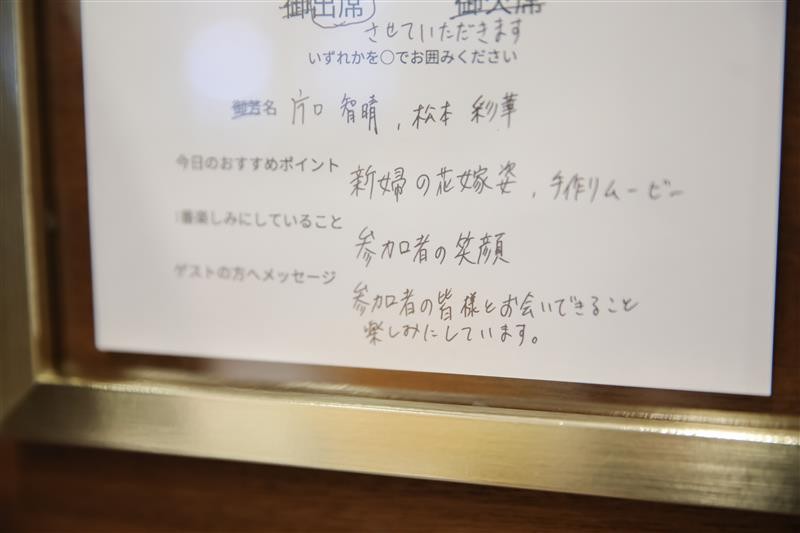 御出席 御欠席
させていただきます
いずれかを○でお囲みください
御芳名 片口 智晴, 松本 彩華
今日のおすすめポイント 新婦の花嫁姿, 手作りムービー
1番楽しみにしていること 参加者の笑顔
ゲストの方へメッセージ 参加者の皆様とお会いできること
楽しみにしています。